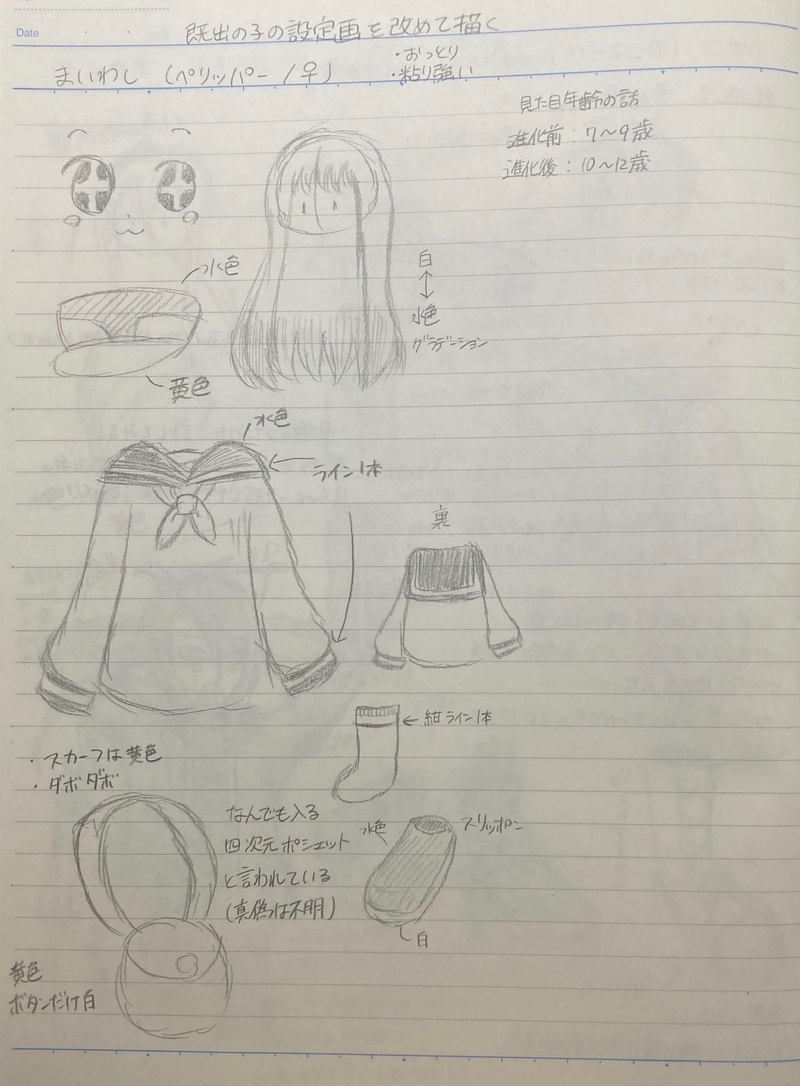 Date
既出の子の設定画を改めて描く
まいわし (ペリッパー/♀)
・おっとり
・粘り強い
見た目年齢の話
進化前：7～9歳
進化後：10～12歳
水色
黄色
白
↕
水色
グラデーション
水色
ライン1本
裏
← 紺ライン1本
・スカーフは黄色
・ダボダボ
なんでも入る
四次元ポシェット
と言われている
(真偽は不明)
水色
スリッポン
白
黄色
ボタンだけ白